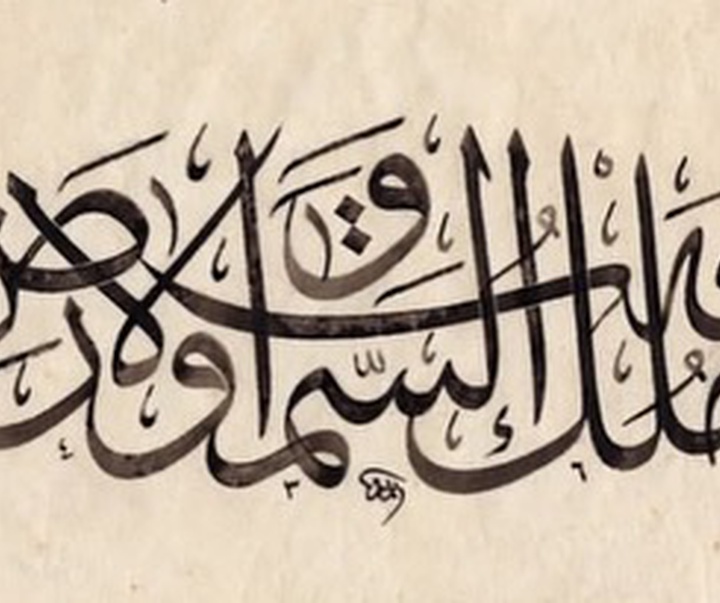 ملك السموات والارض